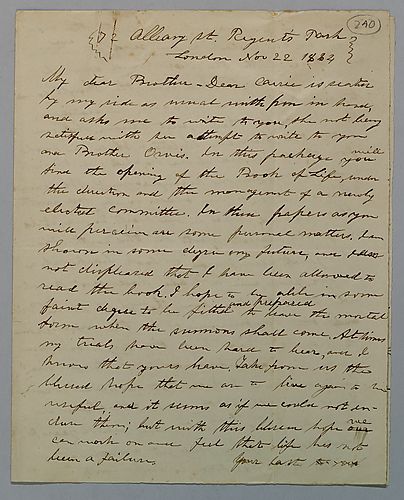 240
2 Albany St. Regents Park
London Nov 22 1884
My dear Brother - Dear Carrie is seated
by my side as usual with pen in hand,
and asks me to write to you, she not being
satisfied with her attempt to write to you
and Brother Orvis. In this package you will
find the opening of the Book of Life, under
the direction and the management of a newly
elected committee. In these papers as you
will perceive are some personal matters,
shown in some degree my future, and
not displeased that I have been allowed to
read the book. I hope to be able in some
faint degree to be fitted and prepared to leave the mortal
form when the summons shall come. At times
my trials have been hard to bear, and I
know that yours have. Take from us the
blessed hope that we are to live again to be
useful, and it seems as if we could not en-
dure them; but with this blessed hope we
can work on and feel that life has not
been a failure. Your last to